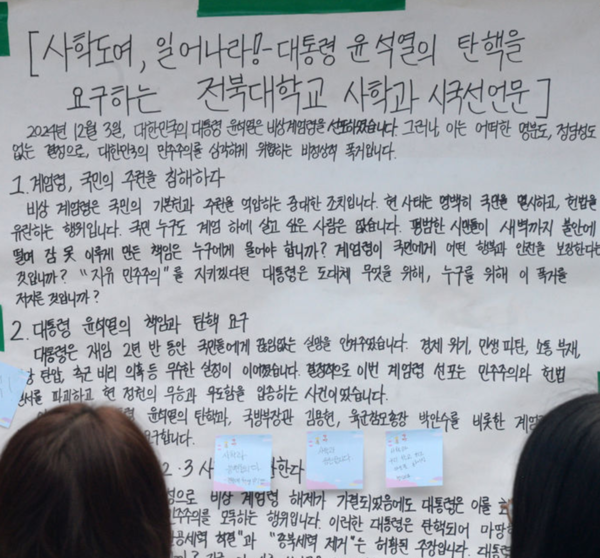 [사학도여, 일어나라!-대통령 윤석열의 탄핵을
요구하는 전북대학교 사학과 시국선언문]
2024년 12월 3일, 대한민국의 대통령 윤석열은 비상계엄령을 선포하였습니다. 그러나 이는 어떠한 명분도, 정당성도
없는 결정으로, 대한민국의 민주주의를 심각하게 위협하는 비정상적 폭거입니다.
1. 계엄령, 국민의 주권을 침해하다
비상 계엄령은 국민의 기본권과 주권을 억압하는 중대한 조치입니다. 현 사태는 명백히 국민을 멸시하고, 헌법을
유린하는 행위입니다. 국민 누구도 계엄 하에 살고 싶은 사람은 없습니다. 평범한 시민들이 새벽까지 불안에
떨며 잠 못 이루게 만든 책임은 누구에게 물어야 합니까? 계엄령이 국민에게 어떤 행복과 안전을 보장한다는
것입니까? "자유 민주주의"를 지키겠다던 대통령은 도대체 무엇을 위해, 누구를 위해 이 폭거를
저지른 것입니까?
2. 대통령 윤석열의 책임과 탄핵 요구
대통령은 재임 2년 반 동안 국민들에게 끊임없는 실망을 안겨주었습니다. 경제 위기, 민생 파탄, 소통 부재,
탄압, 측근 비리 의혹 등 무수한 실정이 이어졌습니다. 결정적으로 이번 계엄령 선포는 민주주의와 헌법
질서를 파괴하고 현 정권의 무능과 무도함을 입증하는 사건이었습니다.
윤석열의 탄핵과, 국방부장관 김용현, 육군참모총장 박안수를 비롯한 계엄
요구합니다.
2·3 사 한다
으로 비상 계엄령 해제가 가결되었음에도 대통령은 이를
민주주의를 모독하는 행위입니다. 이러한 대통령은 탄핵되어 마땅
공세력 척결"과 "종북세력 제거"는 허황된 주장입니다. 대통령